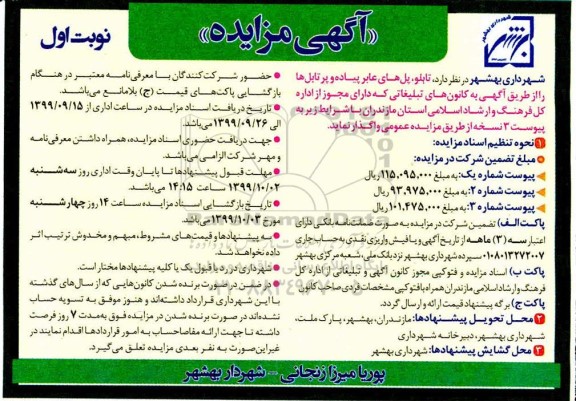 «آگهی مزایده»
نوبت اول
شهرداری بهشهر
شهرداری بهشهر در نظر دارد، تابلو، پل‌های عابر پیاده و پرتابل‌ها
را از طریق آگهی به کانون‌های تبلیغاتی که دارای مجوز از اداره
کل فرهنگ و ارشاد اسلامی استان مازندران با شرایط زیر به
پیوست ۳ نسخه از طریق مزایده عمومی واگذار نماید.
۱ نحوه تنظیم اسناد مزایده:
• مبلغ تضمین شرکت در مزایده:
پیوست شماره یک: به مبلغ ۱۱۵,۰۹۵,۰۰۰ ریال
پیوست شماره ۲: به مبلغ ۹۳,۹۷۵,۰۰۰ ریال
پیوست شماره ۳: به مبلغ ۱۰۱,۴۷۵,۰۰۰ ریال
پاکت الف) تضمین شرکت در مزایده به صورت ضمانت نامه بانکی دارای
اعتبار سه (۳) ماهه از تاریخ آگهی و یا فیش واریزی نقدی به حساب جاری
۰۱۰۸۰۱۳۲۷۲۰۰۷ سپرده شهرداری بهشهر نزد بانک ملی، شعبه مرکزی بهشهر
پاکت ب) اسناد مزایده و فتوکپی مجوز کانون آگهی و تبلیغاتی از اداره کل
فرهنگ و ارشاد اسلامی مازندران همراه با فتوکپی مشخصات فردی صاحب کانون
پاکت ج) برگه پیشنهاد قیمت ارائه و ارسال گردد.
۲ محل تحویل پیشنهادها: مازندران، بهشهر، پارک ملت،
شهرداری بهشهر، دبیرخانه شهرداری
۳ محل گشایش پیشنهادها: شهرداری بهشهر
• حضور شرکت کنندگان با معرفی نامه معتبر در هنگام
بازگشایی پاکت‌های قیمت (ج) بلامانع می‌باشد.
• تاریخ دریافت اسناد مزایده در ساعت اداری از ۱۳۹۹/۰۹/۱۵
الی ۱۳۹۹/۰۹/۲۶ می‌باشد.
• جهت دریافت حضوری اسناد مزایده، همراه داشتن معرفی نامه
و مهر شرکت الزامی می‌باشد.
• مهلت قبول پیشنهادها تا پایان وقت اداری روز سه‌شنبه
۱۳۹۹/۱۰/۰۲ ساعت ۱۴:۱۵ می‌باشد.
• تاریخ بازگشایی اسناد مزایده ساعت ۱۴ روز چهارشنبه
مورخ ۱۳۹۹/۱۰/۰۳ می‌باشد.
• به پیشنهادها و قیمت‌های مشروط، مبهم و مخدوش ترتیب اثر
داده نخواهد شد.
• شهرداری در رد یا قبول یک یا کلیه پیشنهادها مختار است.
• در صورت برنده شدن کانون‌هایی که از سال‌های گذشته
با این شهرداری قرارداد داشته‌اند و هنوز موفق به تسویه حساب
نشده‌اند در صورت برنده شدن در مزایده فوق به‌مدت ۷ روز فرصت
داشته تا جهت ارائه مفاصاحساب به امور قراردادها اقدام نمایند در
غیر این صورت به نفر بعدی مزایده تعلق می‌گیرد.
پوریا میرزا زنجانی – شهردار بهشهر